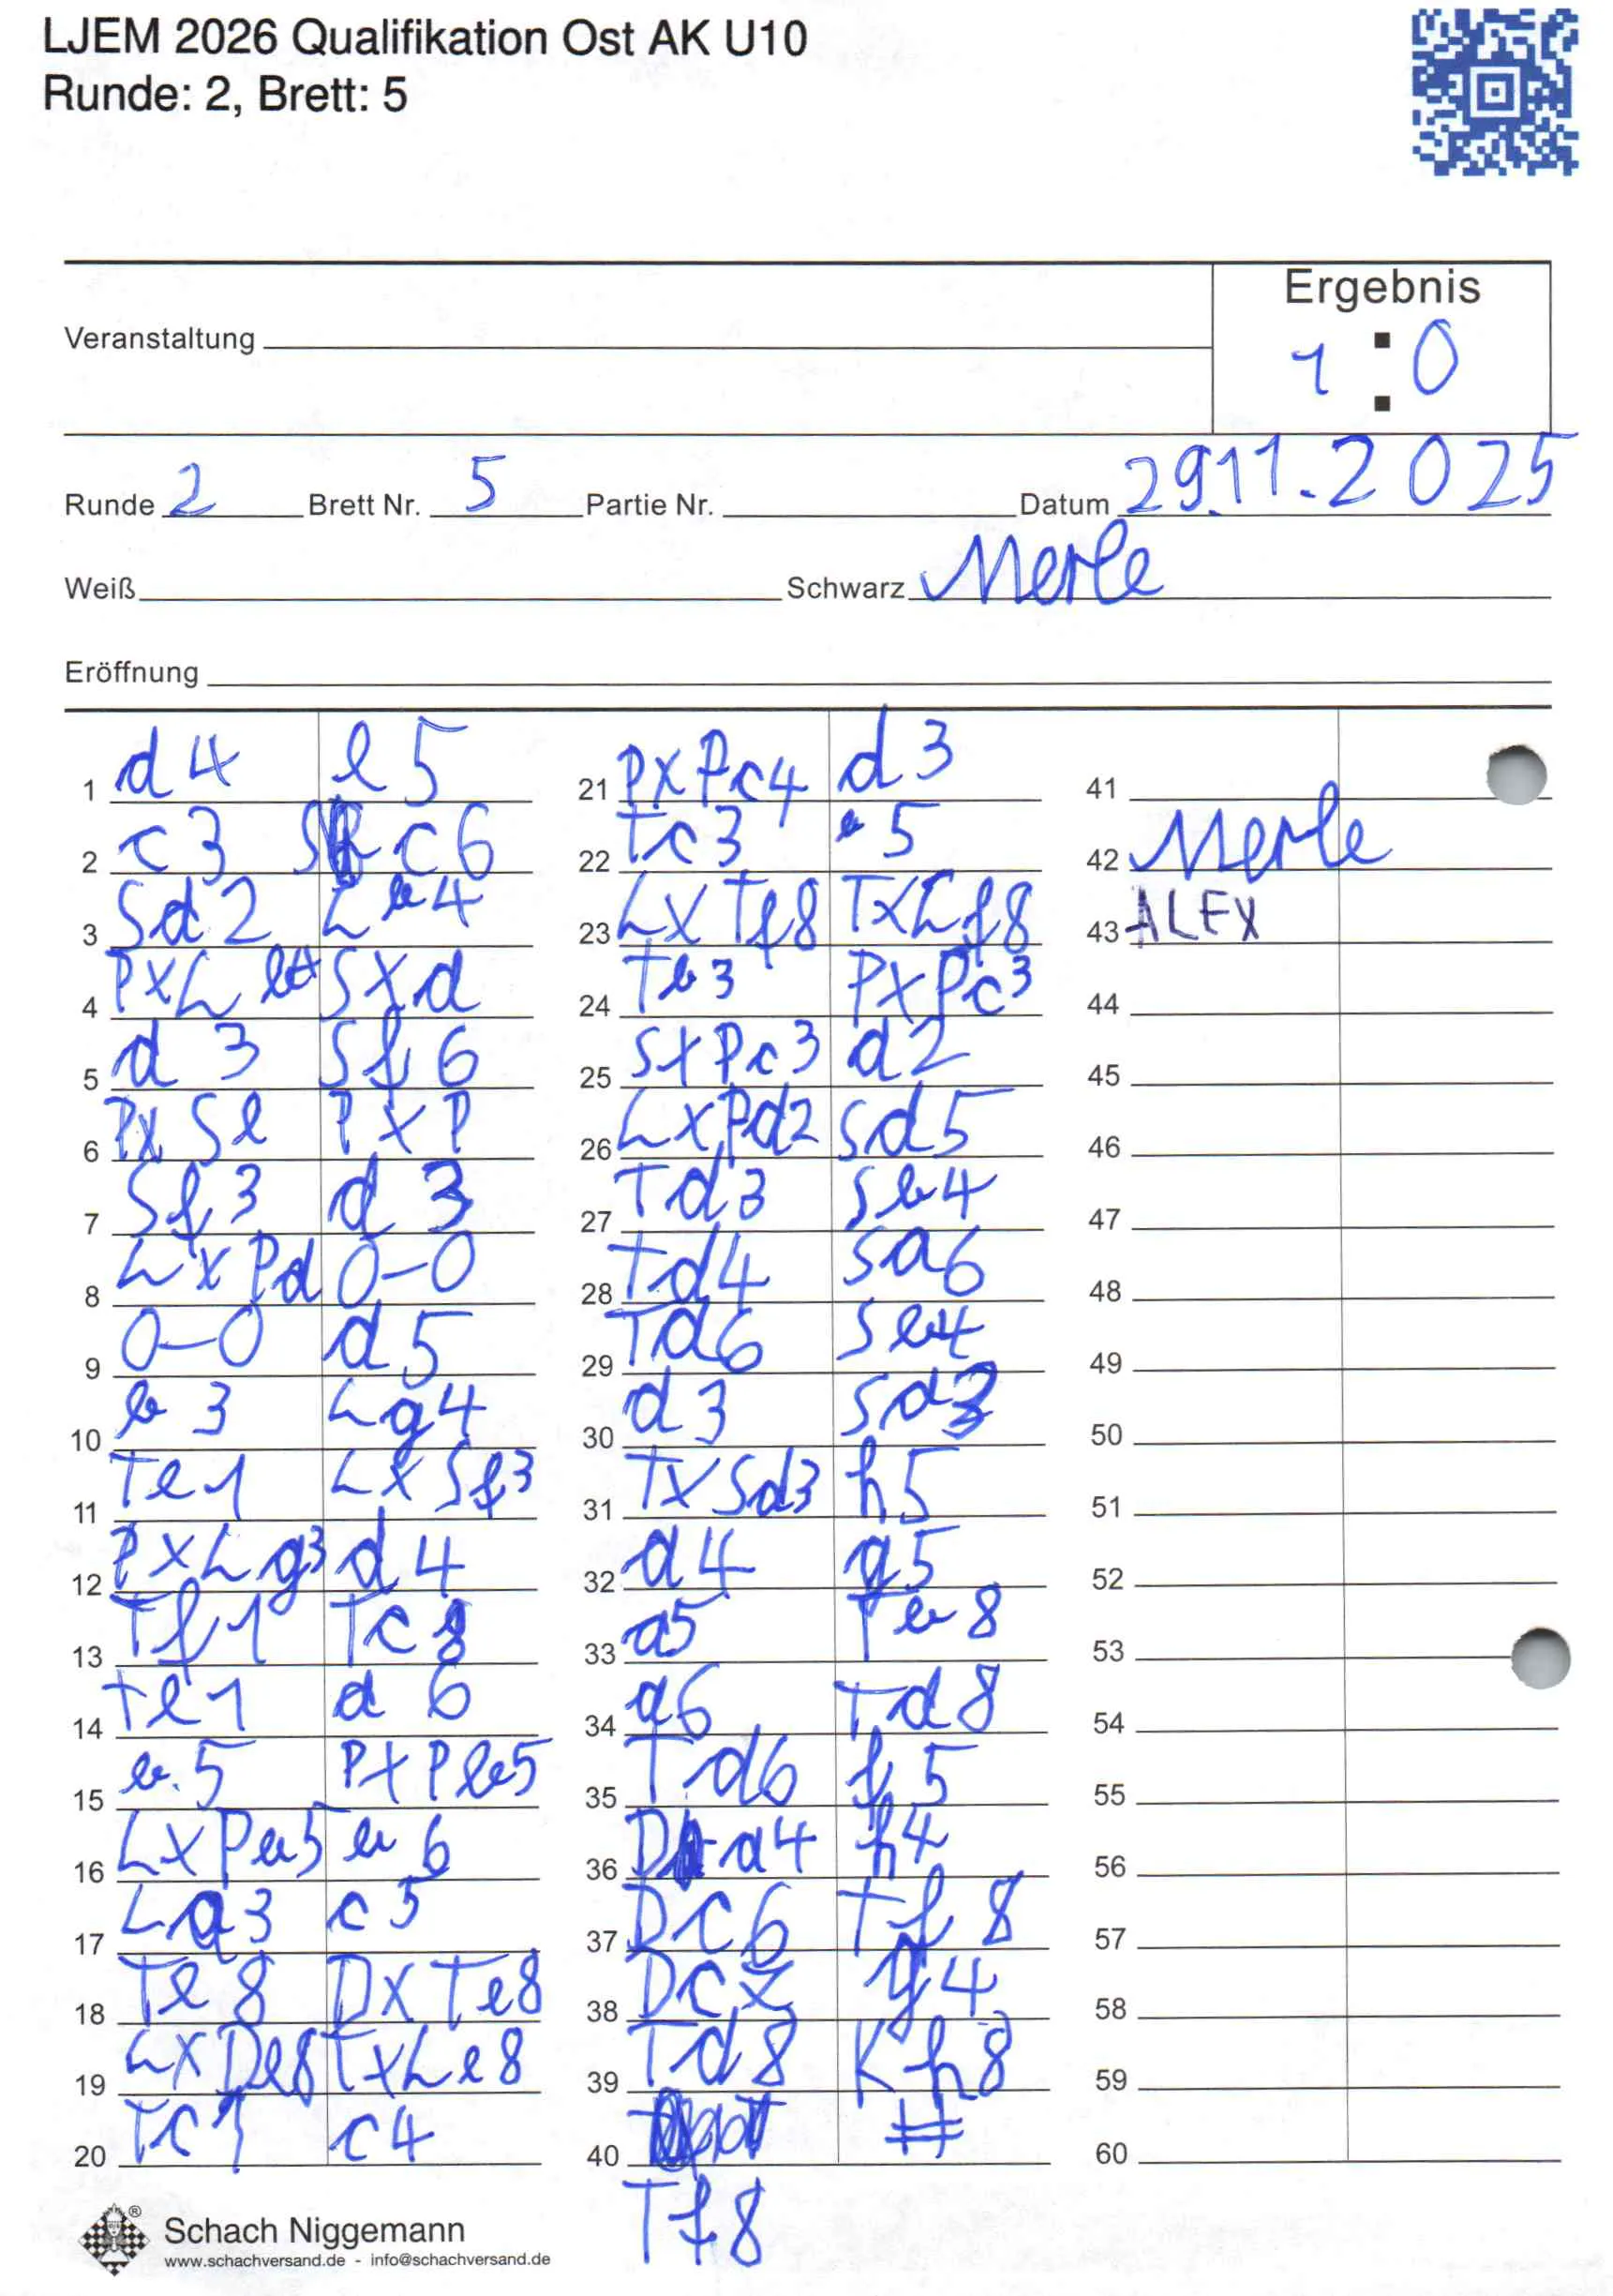 LJEM 2026 Qualifikation Ost AK U10
Runde: 2, Brett: 5
Ergebnis
Veranstaltung
1 : 0
Runde 2 Brett Nr. 5 Partie Nr. Datum 29.11.2025
Weiß Schwarz Merle
Eröffnung
1 d4 e5
2 c3 Sc6
3 Sd2 Lb4
4 PxL b4 Sxd
5 d3 Sf6
6 Px Se PxP
7 Sf3 d3
8 LxPd 0-0
9 0-0 d5
10 b3 Lg4
11 Te1 LxSf3
12 PxLg3 d4
13 Tf1 Tc8
14 Te1 a6
15 b5 PxPb5
16 LxPb5 b6
17 La3 c5
18 Te8 DxTe8
19 LxDe8 TxLe8
20 Tc1 c4
21 PxPc4 d3
22 Tc3 b5
23 LxTf8 TxLf8
24 Tb3 PxPc3
25 SxPc3 d2
26 LxPd2 Sd5
27 Td3 Sb4
28 Td4 Sa6
29 Td6 Sb4
30 d3 Sd3
31 TxSd3 h5
32 a4 g5
33 a5 Tb8
34 a6 Td8
35 Td6 f5
36 Da4 h4
37 Dc6 Tf8
38 Dc7 g4
39 Td8 Kh8
40 #
Tf8
41
42 Merle
43 ALEX
44
45
46
47
48
49
50
51
52
53
54
55
56
57
58
59
60
Schach Niggemann
www.schachversand.de - info@schachversand.de